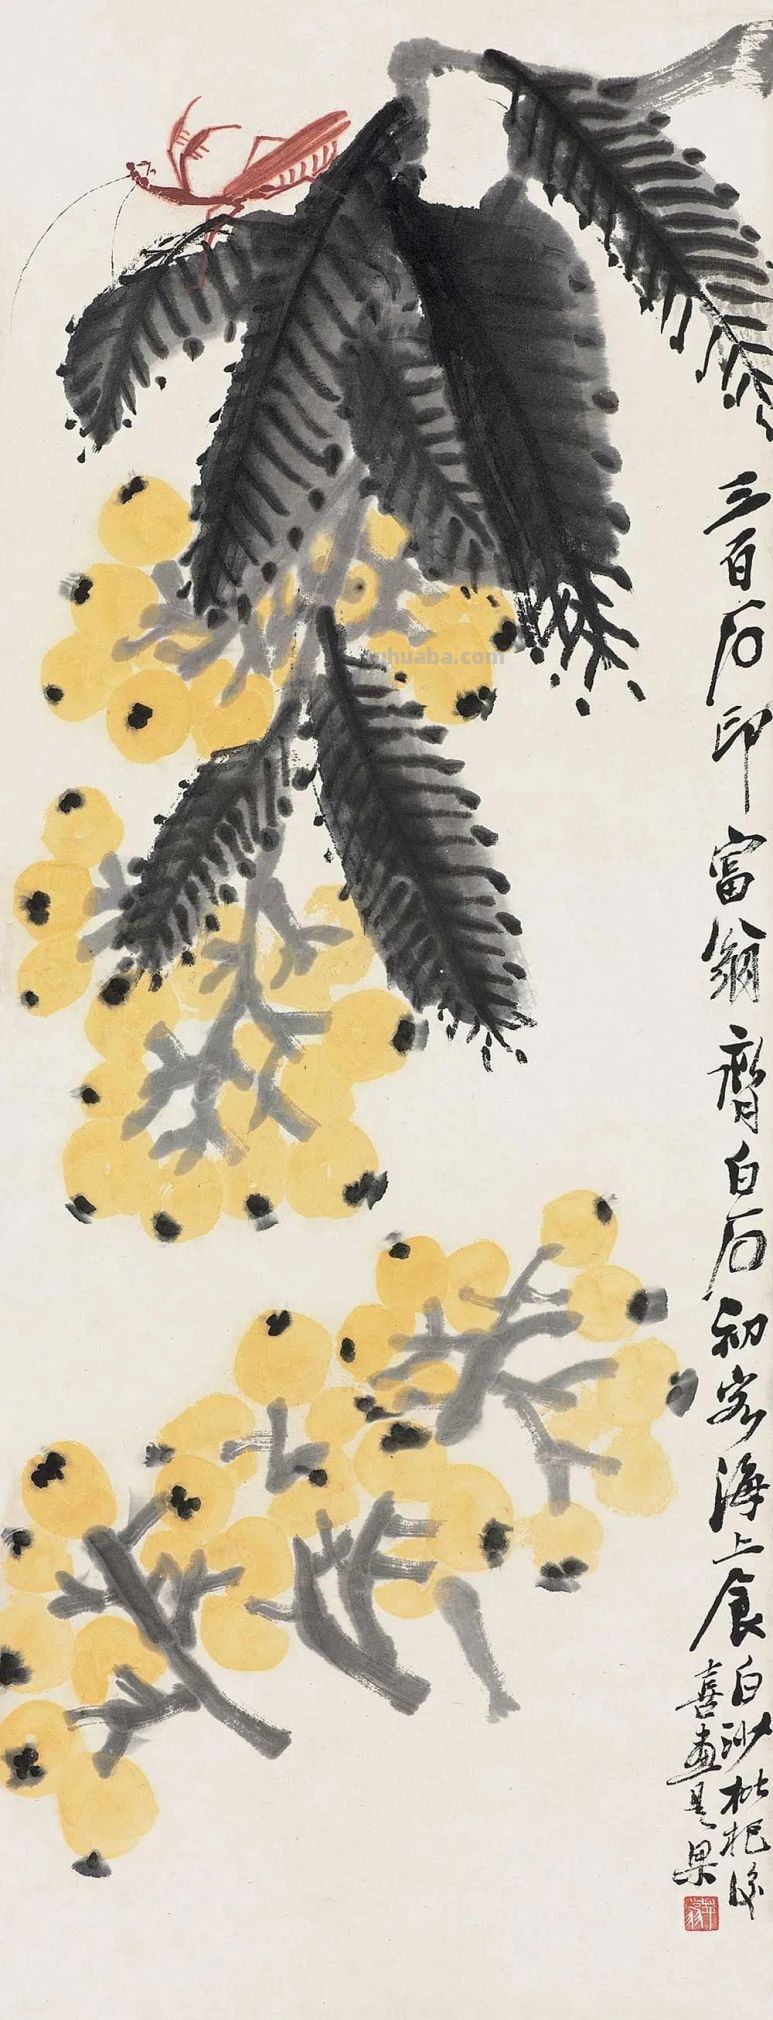 三百石印富翁齊白石初客海上食白沙枇杷後
喜畫是果
uhuaba.com